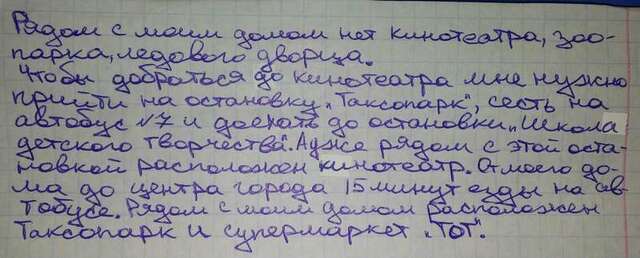 Рядом с моим домом нет кинотеатра, зоо-
парка, ледового дворца.
Чтобы добраться до кинотеатра мне нужно
прийти на остановку „Таксопарк", сесть на
автобус №7 и доехать до остановки „Школа
детского творчества". А уже рядом с этой оста-
новкой расположен кинотеатр. От моего до-
ма до центра города 15 минут езды на ав-
тобусе. Рядом с моим домом расположен
Таксопарк и супермаркет „ТОТ".